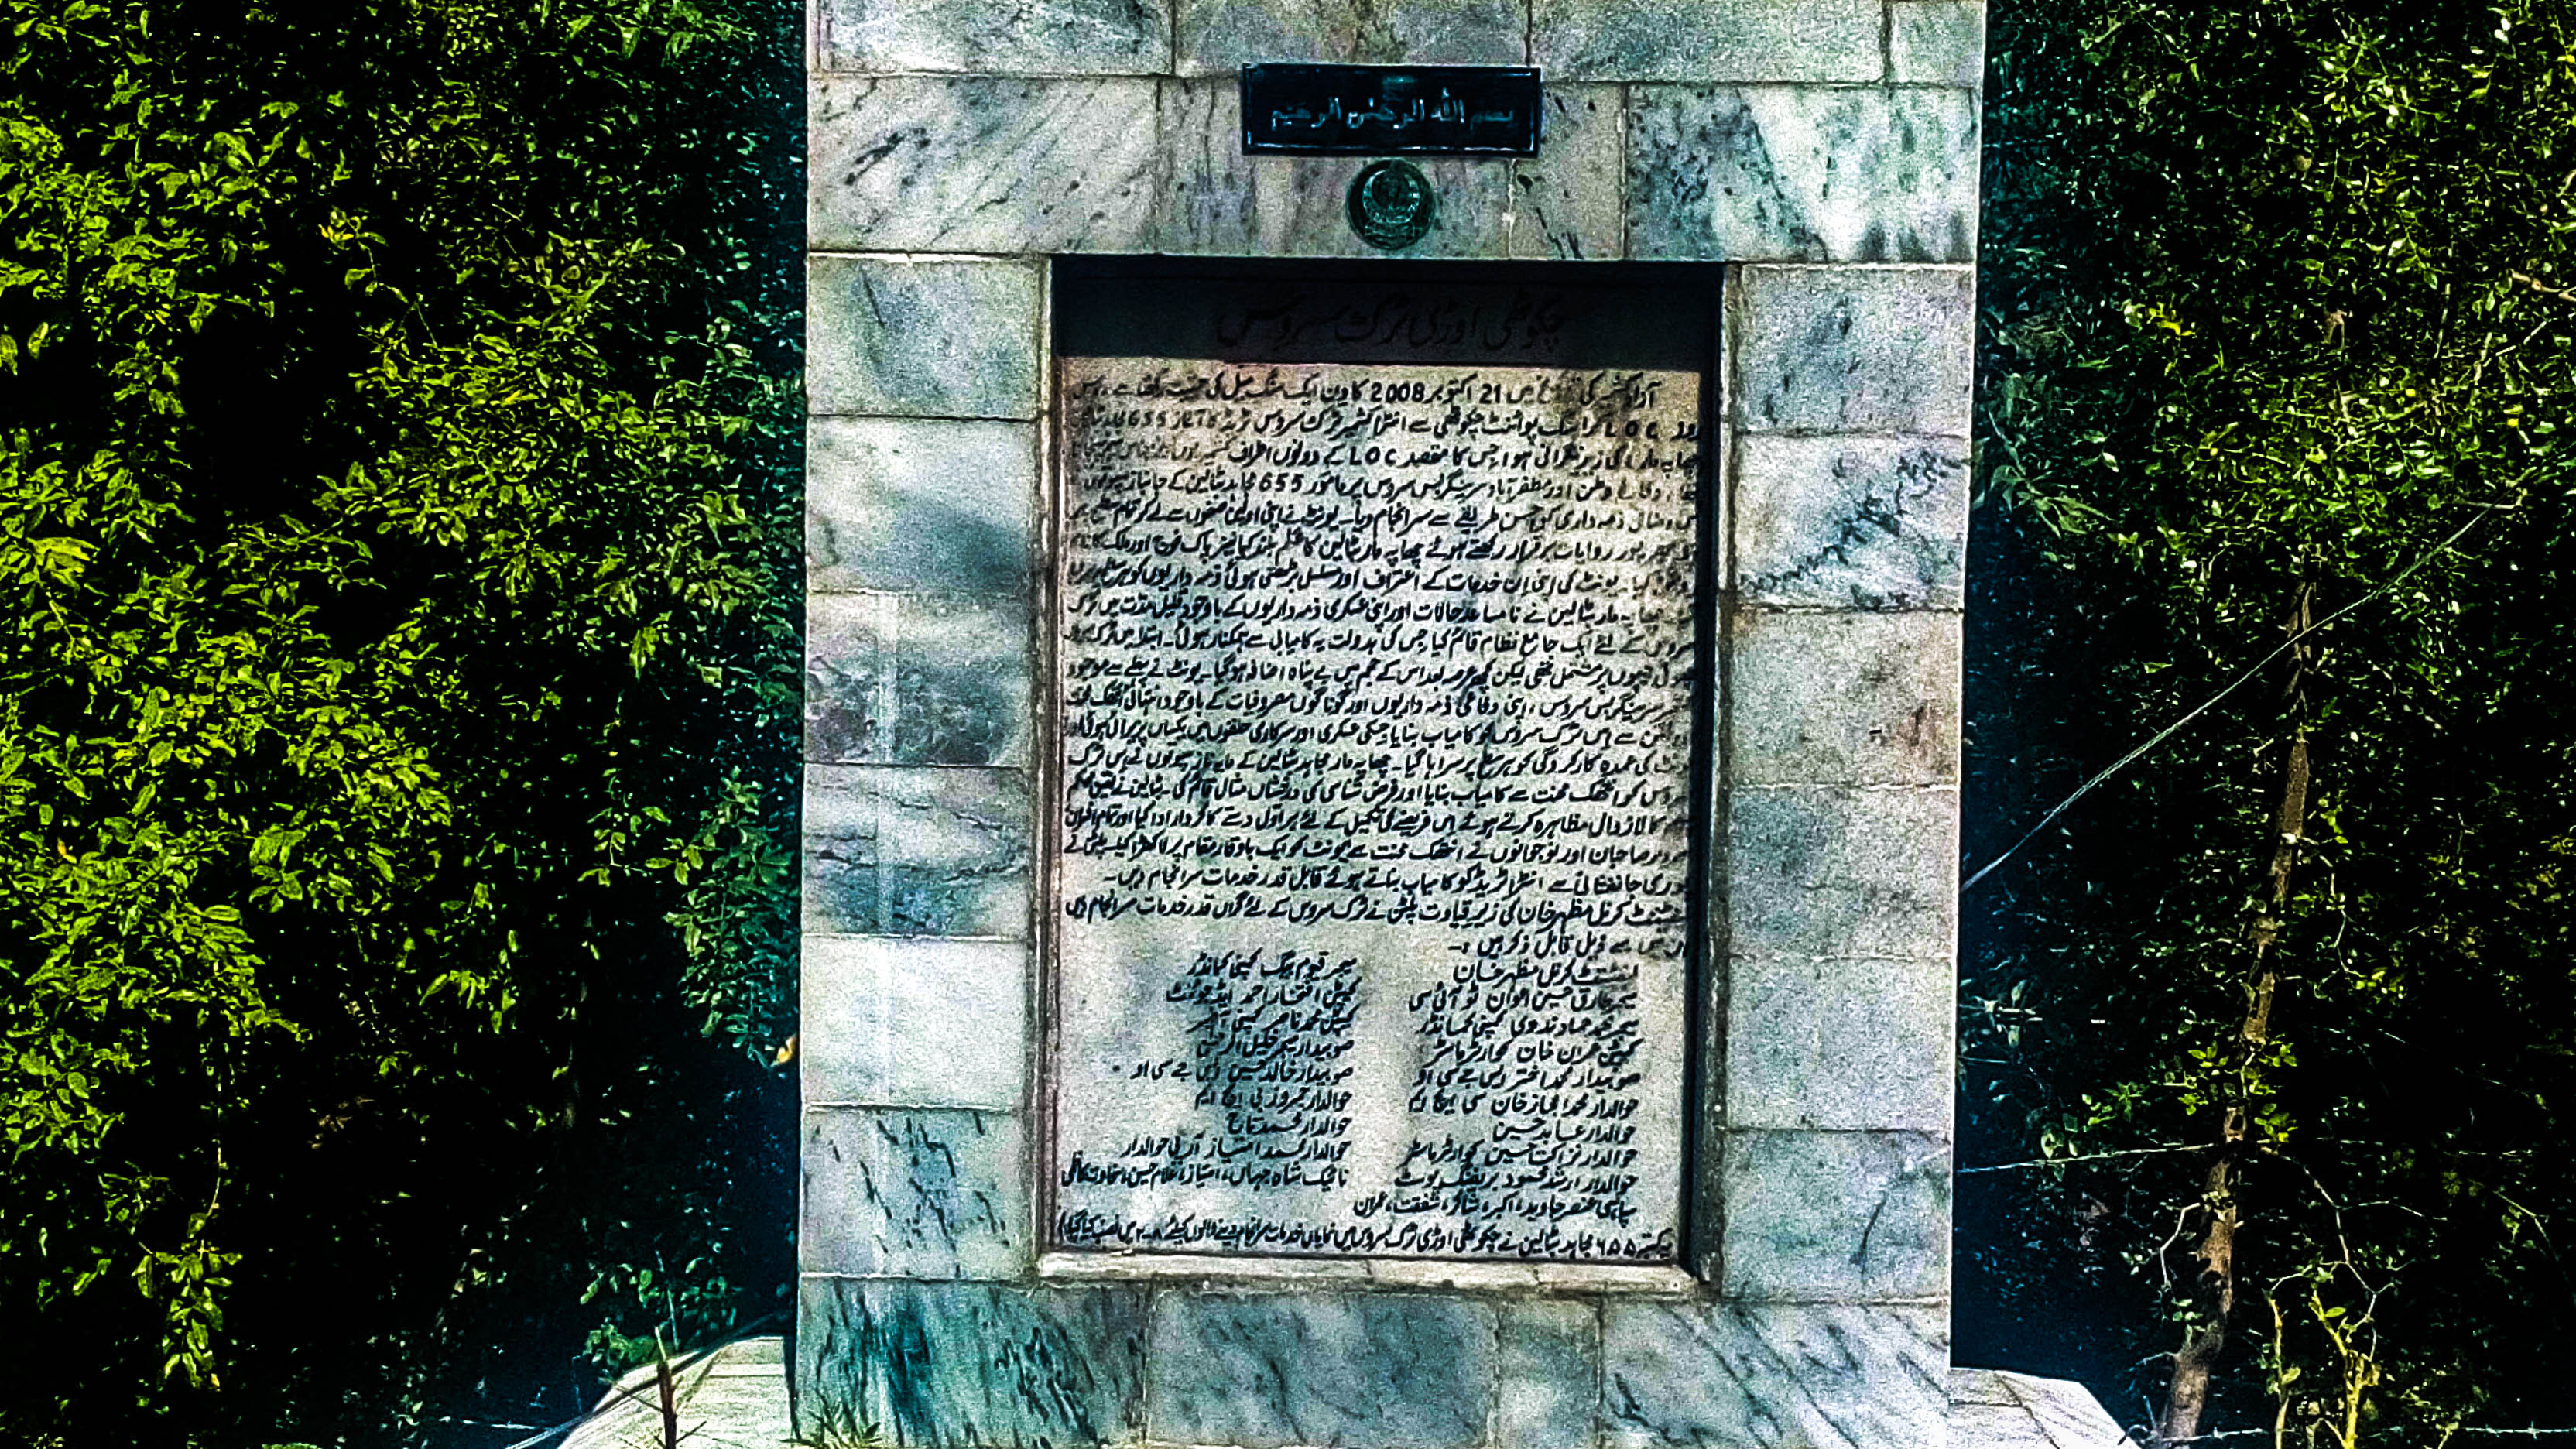 بسم الله الرحمٰن الرحیم
چکوٹھی اوڑی ٹرک سروس
آزاد کشمیر کی تاریخ میں 21 اکتوبر 2008 کا دن ایک سنگ میل کی حیثیت رکھتا ہے۔ اس
روز LOC کراسنگ پوائنٹ چکوٹھی سے انٹرا کشمیر ٹرک سروس ٹریڈ کا آغاز 655 مجاہد بٹالین
چھاپہ مار کی زیر نگرانی ہوا، جس کا مقصد LOC کے دونوں اطراف
دفاع وطن اور مظفر آباد سرینگر بس سروس پر مامور 655 مجاہد بٹالین کے جانباز سپوتوں
ذمہ داری کو احسن طریقے سے سرانجام دیا۔ یونٹ نے اپنی اولین صفحوں سے لے کر تمام سطح پر
بھرپور روایات برقرار رکھتے ہوئے چھاپہ مار بٹالین کا علم بلند کیا نیز پاک فوج اور ملک کا نام
روشن کیا۔ یونٹ کی اپنی ان خدمات کے اعتراف اور مسلسل بڑھتی ہوئی ذمہ داریوں کو ہر سطح پر سراہا
چھاپہ مار بٹالین نے نامساعد حالات اور اپنی عسکری ذمہ داریوں کے باوجود قلیل مدت میں ٹرک
سروس کے لئے ایک جامع نظام قائم کیا جس کی بدولت یہ کامیابی سے ہمکنار ہوئی۔ ابتداء میں ٹرک سروس
پر مشتمل تھی لیکن کچھ عرصہ بعد اس کے حجم میں بے پناہ اضافہ ہو گیا۔ یونٹ نے پہلے سے موجود
سرینگر بس سروس، اپنی دفاعی ذمہ داریوں اور گوناگوں مصروفیات کے باوجود انتہائی انتھک
سے اس ٹرک سروس کو کامیاب بنایا جسکی عسکری اور سرکاری حلقوں میں یکساں پزیرائی ہوئی اور
یونٹ کی عمدہ کارکردگی کو ہر سطح پر سراہا گیا۔ چھاپہ مار مجاہد بٹالین کے مایہ ناز سپوتوں نے اس ٹرک
سروس کو انتھک محنت سے کامیاب بنایا اور فرض شناسی کی درخشاں مثال قائم کی۔ بٹالین نے
کا لازوال مظاہرہ کرتے ہوئے اس فریضے کی تکمیل کے لئے ہراول دستے کا کردار ادا کیا اور تمام افسران
سردار صاحبان اور نوجوانوں نے انتھک محنت سے یونٹ کو ایک باوقار مقام پر لا کھڑا کیا۔ پلٹن نے
پوری جانفشانی سے انٹرا ٹریڈ کو کامیاب بناتے ہوئے قابل قدر خدمات سرانجام دیں۔
لیفٹیننٹ کرنل مظہر خان کی زیر قیادت پلٹن نے ٹرک سروس کے لئے گراں قدر خدمات سرانجام دیں
ان میں سے ذیل قابل ذکر ہیں :۔
لیفٹیننٹ کرنل مظہر خان میجر قیوم بیگ کمپنی کمانڈر
میجر طارق حسین اعوان ٹو آئی سی کیپٹن افتخار احمد ایڈجوٹنٹ
میجر محمد حماد ندوی کمپنی کمانڈر کیپٹن محمد ناصر کمپنی آفیسر
کیپٹن عمران خان کوارٹر ماسٹر صوبیدار میجر جمیل الرحمٰن
صوبیدار محمد اختر ایس جے سی او صوبیدار خالد حسین ایس جے سی او
حوالدار محمد اعجاز خان سی ایچ ایم حوالدار سرور بی ایچ ایم
حوالدار عابد حسین حوالدار محمد تاج
حوالدار نزاکت حسین کوارٹر ماسٹر حوالدار محمد امتیاز آر پی حوالدار
حوالدار ارشد محمود بریفنگ پوسٹ نائیک شاہ جہاں، امتیاز، غلام حسین، سخاوت کاظمی
سپاہی عنصر جاوید، اکبر، شاکر، شفقت، عمران
یہ کتبہ ۶۵۵ مجاہد بٹالین نے چکوٹھی اوڑی ٹرک سروس میں نمایاں خدمات سرانجام دینے والوں کیلئے ۲۰۰۸ میں نصب کیا گیا